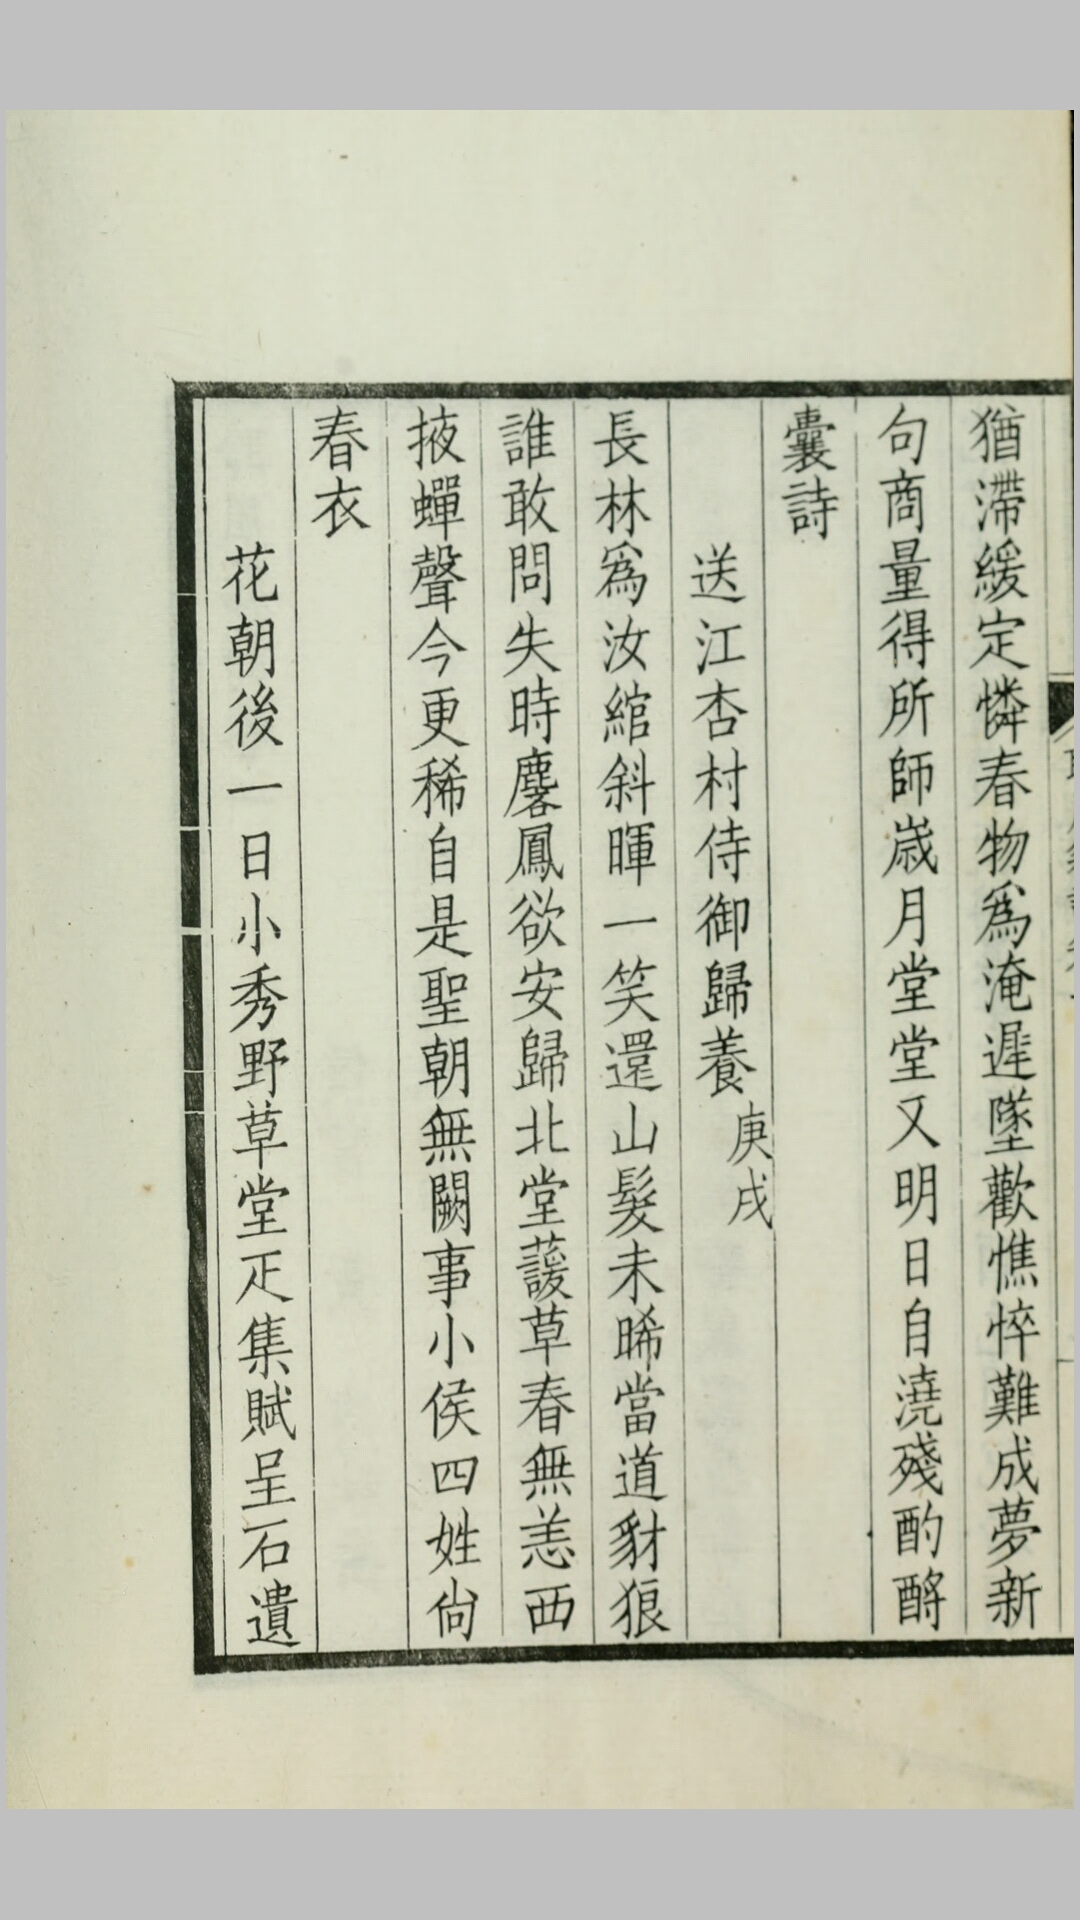 猶滯緩定憐春物爲淹遲墜歡憔悴難成夢新
句商量得所師歲月堂堂又明日自澆殘酌酹
囊詩
送江杏村侍御歸養庚戌
長林爲汝綰斜暉一笑還山髮未晞當道豺狼
誰敢問失時麐鳳欲安歸北堂蘐草春無恙西
掖蟬聲今更稀自是聖朝無闕事小侯四姓尙
春衣
花朝後一日小秀野草堂疋集賦呈石遺